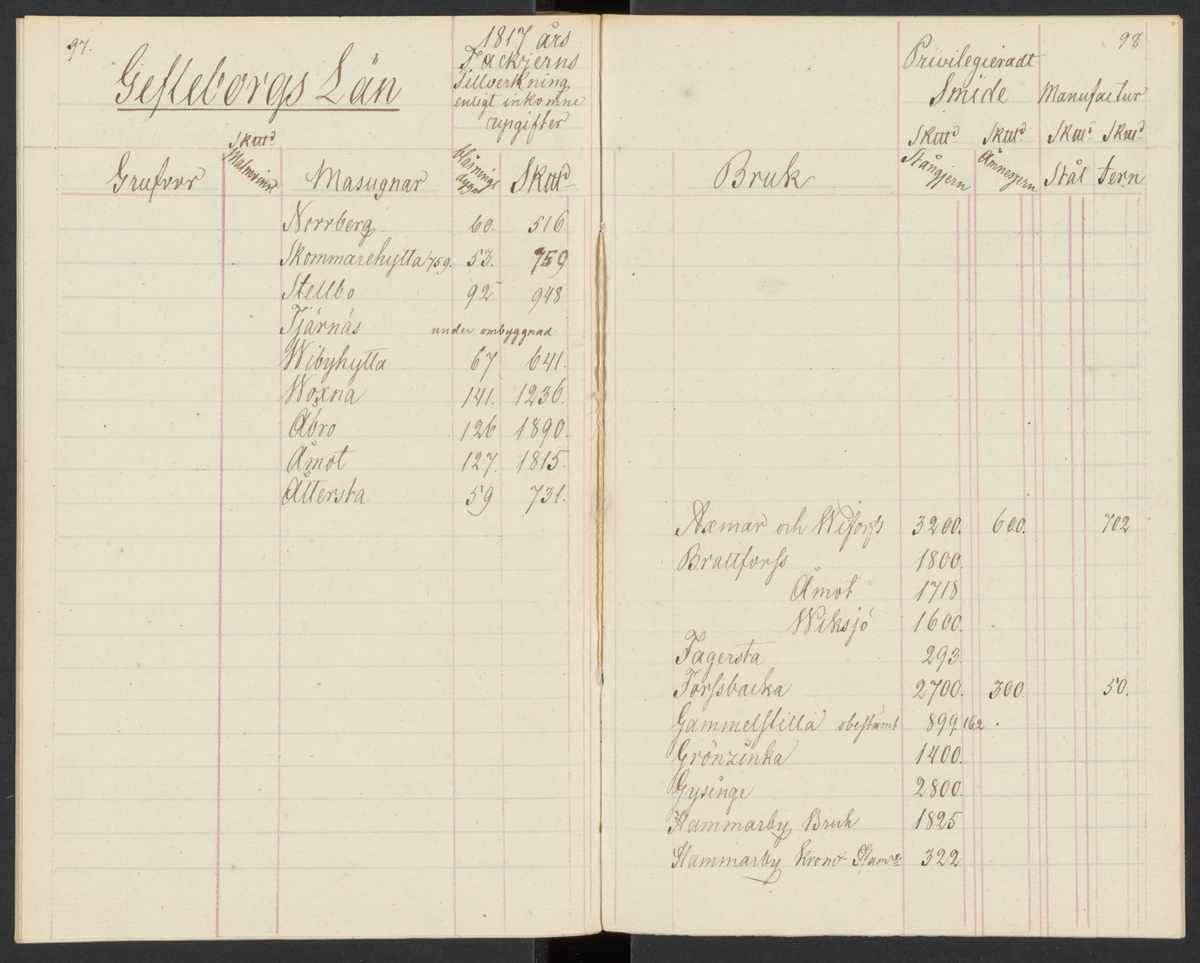 97.
Gefleborgs Län
1817 års
Tackjerns
Tillverkning
enligt inkomne
upgifter
Grufvor
Skttd
Malmvinst
Masugnar
blåsnings
dygn
Skttd
Norrberg 60. 516
Skommarehytta 759. 53. 759
Stellbo 92 948
Tjärnäs under ombyggnad
Wibyhytta 67 641.
Woxna 141. 1236.
Åbro 126 1890.
Åmot 127. 1815.
Åttersta 59 731.
98
Privilegieradt
Smide Manufactur
Skttd Skttd Skttd Skttd
Bruk Stångjern Ämnesjern Stål Jern
Axmar och Wiforss 3200. 600. 702
Brattforss 1800.
Åmot 1718
Wiksjö 1600.
Fagersta 293.
Forssbacka 2700. 300. 50.
Gammelstilla obestämt 899 162.
Grönzinka 1400.
Gysinge 2800.
Hammarby Bruk 1825
Hammarby Krono Hamre 322